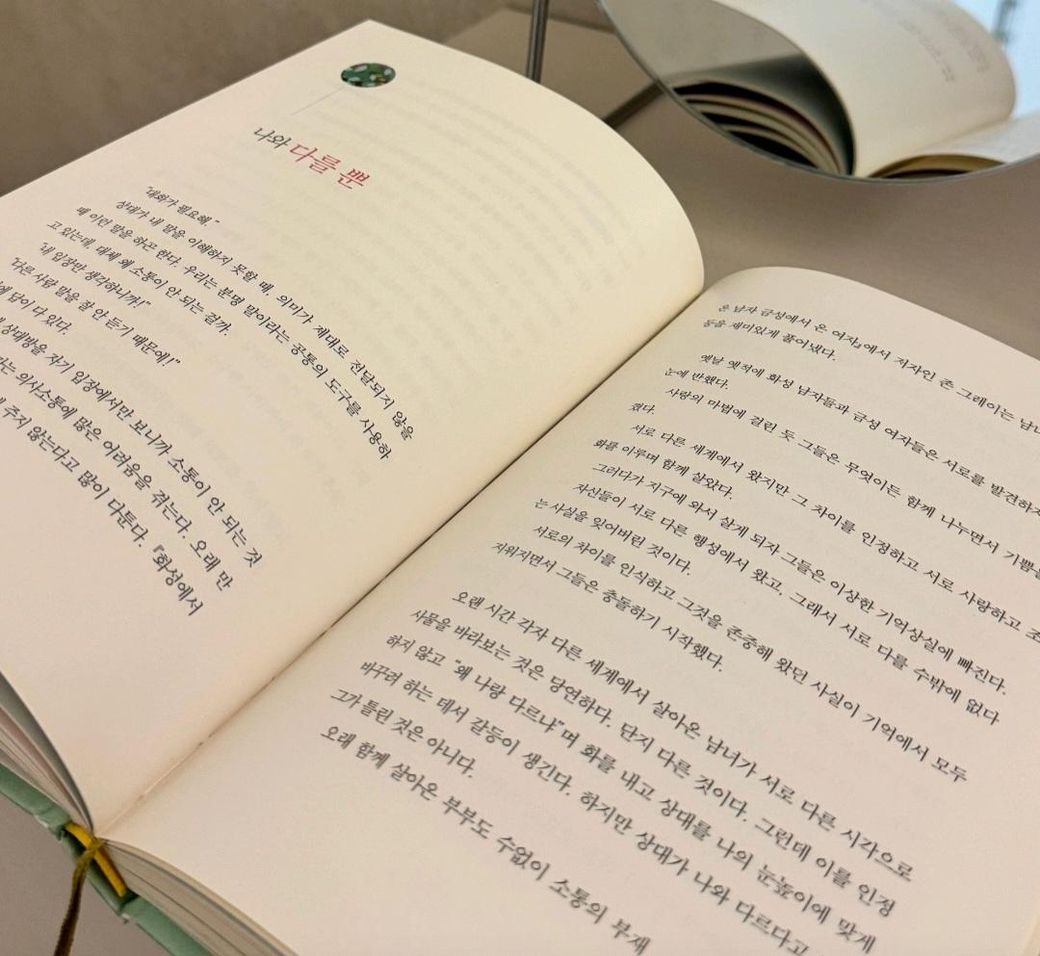 나와 다를 뿐
“대화가 필요해.”
상대가 내 말을 이해하지 못할 때, 의미가 제대로 전달되지 않을
때 이런 말을 하곤 한다. 우리는 분명 말이라는 공통의 도구를 사용하
고 있는데, 대체 왜 소통이 안 되는 걸까.
“내 입장만 생각하니까!”
“다른 사람 말을 잘 안 듣기 때문에!”
에 답이 다 있다.
상대방을 자기 입장에서만 보니까 소통이 안 되는 것
는 의사소통에 많은 어려움을 겪는다. 오래 만
주지 않는다고 많이 다툰다. 『화성에서
온 남자 금성에서 온 여자』에서 저자인 존 그레이는 남녀
등을 재미있게 풀어냈다.
옛날 옛적에 화성 남자들과 금성 여자들은 서로를 발견하자
눈에 반했다.
사랑의 마법에 걸린 듯 그들은 무엇이든 함께 나누면서 기쁨을
꼈다.
서로 다른 세계에서 왔지만 그 차이를 인정하고 서로 사랑하고 조
화를 이루며 함께 살았다.
그러다가 지구에 와서 살게 되자 그들은 이상한 기억상실에 빠진다.
자신들이 서로 다른 행성에서 왔고, 그래서 서로 다를 수밖에 없다
는 사실을 잊어버린 것이다.
서로의 차이를 인식하고 그것을 존중해 왔던 사실이 기억에서 모두
지워지면서 그들은 충돌하기 시작했다.
오랜 시간 각자 다른 세계에서 살아온 남녀가 서로 다른 시각으로
사물을 바라보는 것은 당연하다. 단지 다른 것이다. 그런데 이를 인정
하지 않고 “왜 나랑 다르냐”며 화를 내고 상대를 나의 눈높이에 맞게
바꾸려 하는 데서 갈등이 생긴다. 하지만 상대가 나와 다르다고
그가 틀린 것은 아니다.
오래 함께 살아온 부부도 수없이 소통의 부재